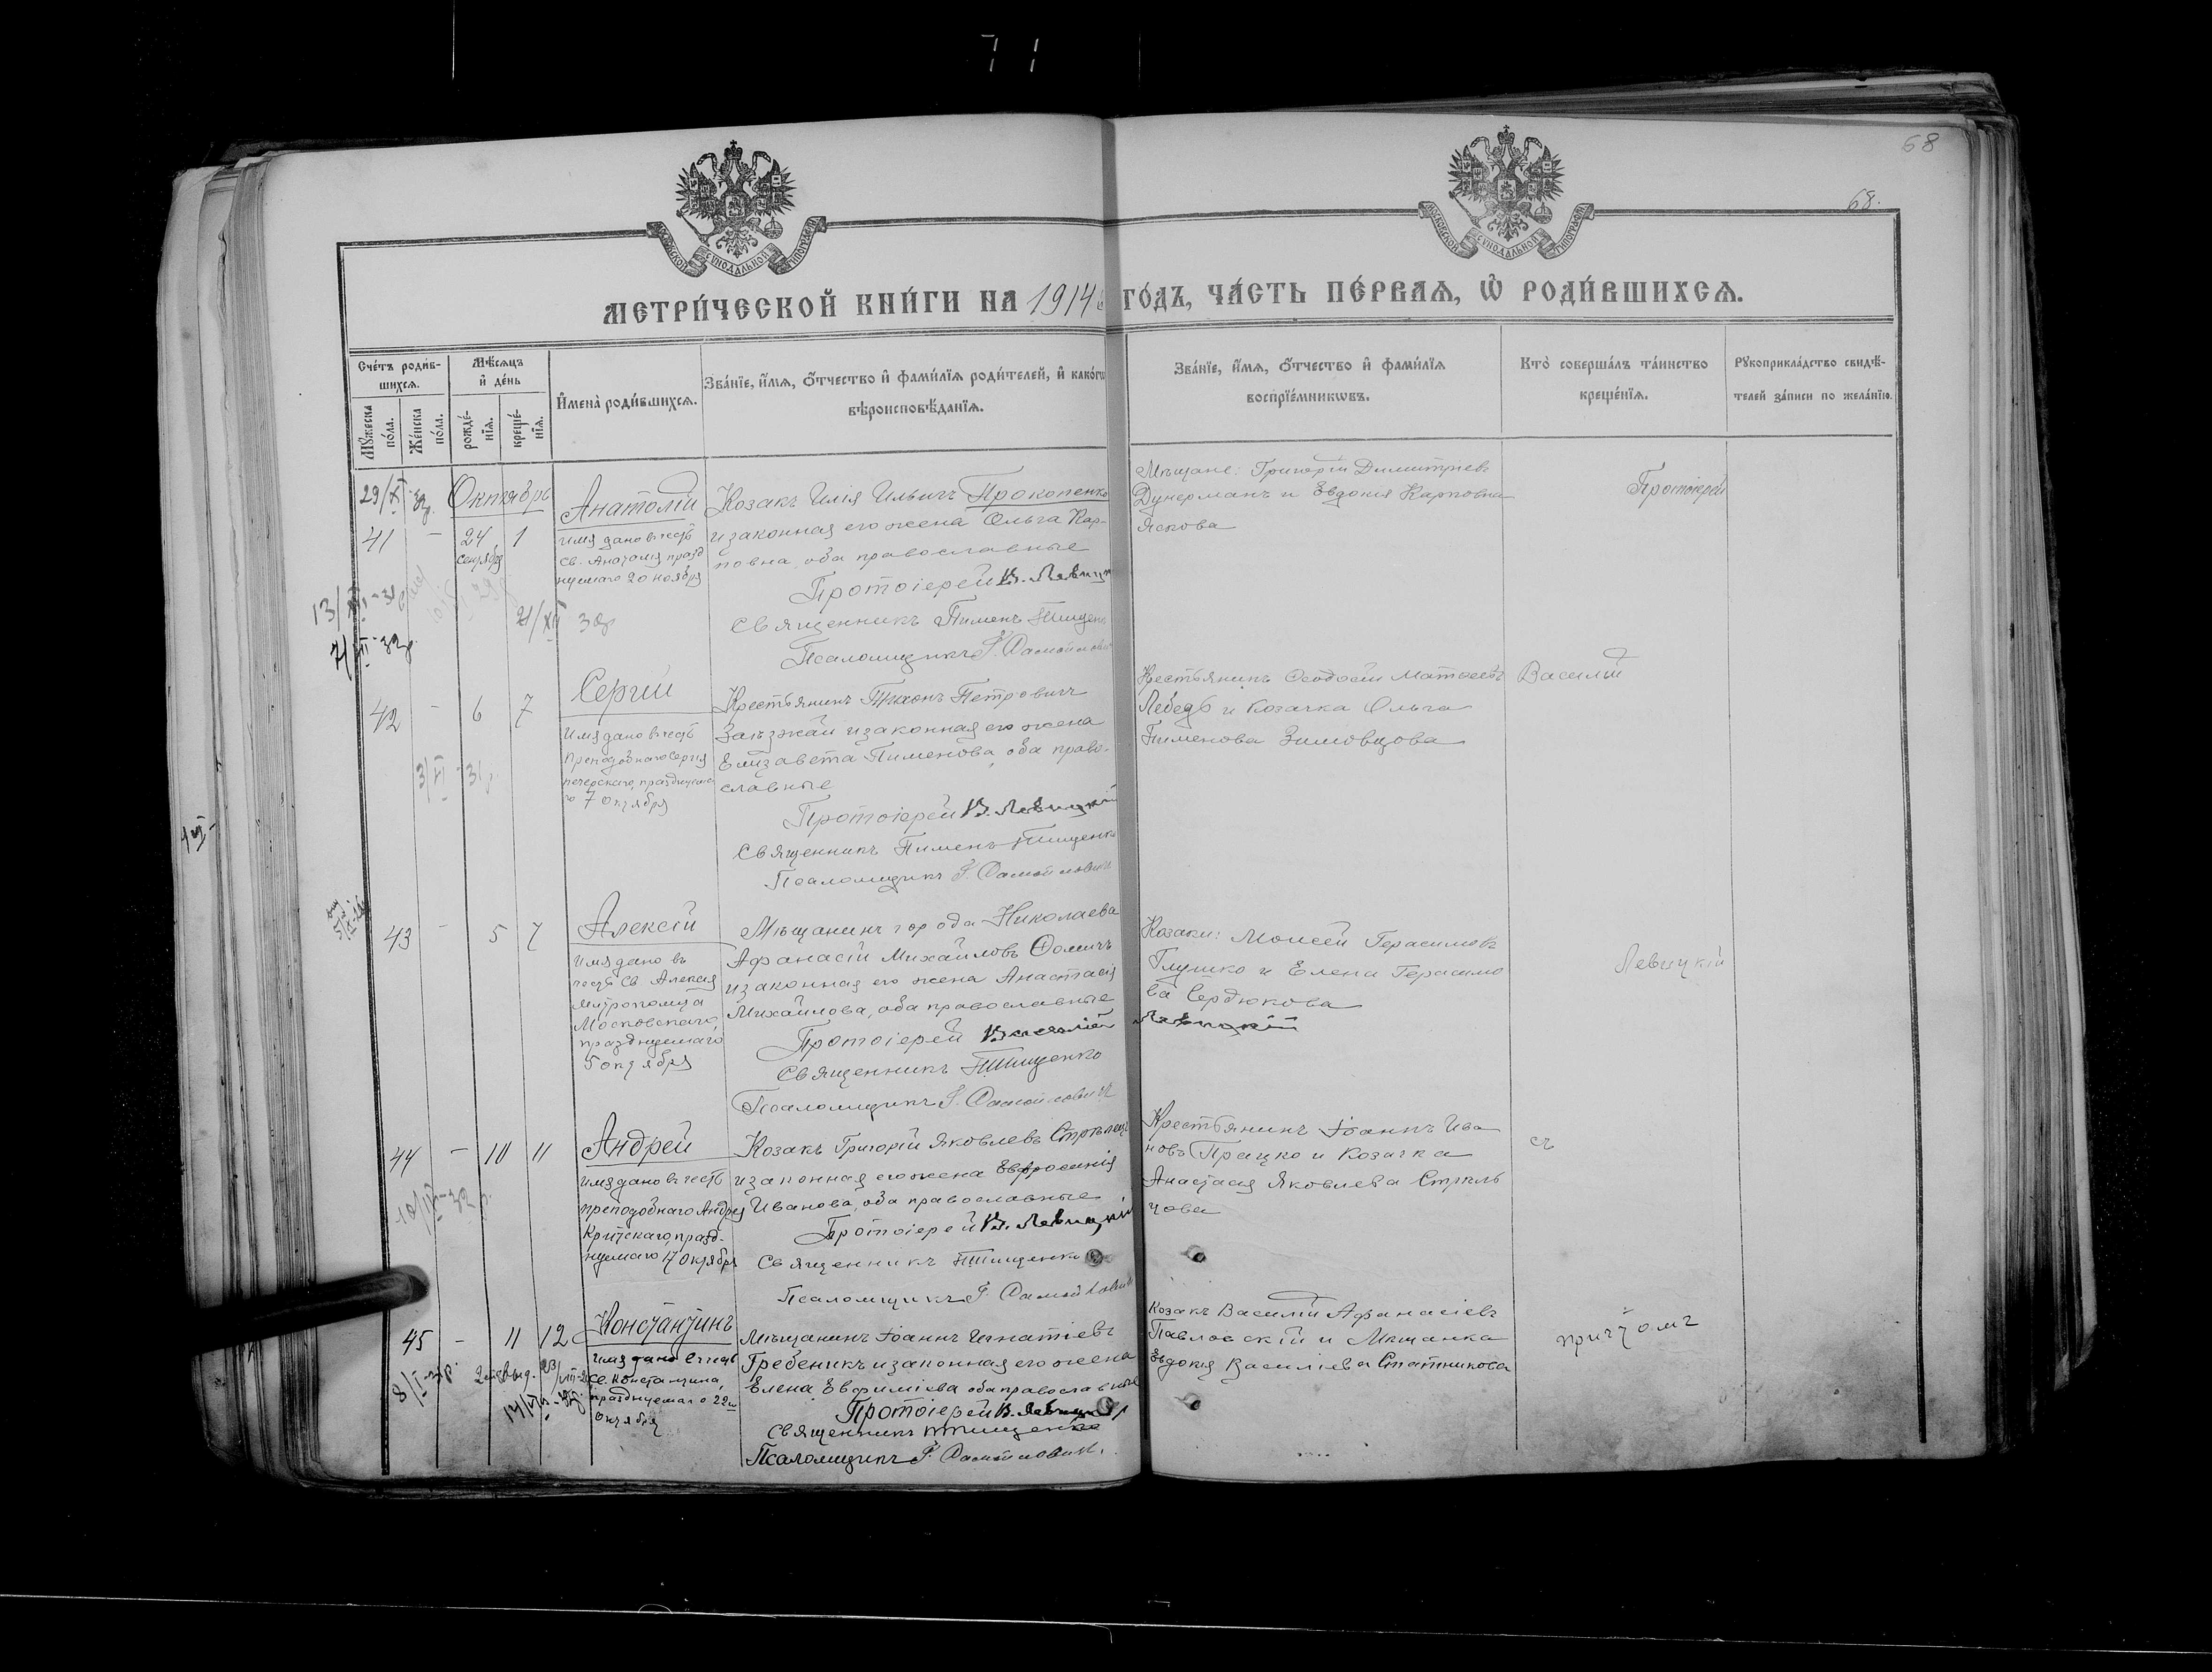 68
68.
МОСКОВСКОЙ СѴНОДАЛЬНОЙ ТИПОГРАФІИ
МОСКОВСКОЙ СѴНОДАЛЬНОЙ ТИПОГРАФІИ
МЕТРИ́ЧЕСКОЙ КНИ́ГИ НА 1914 ГО́ДЪ, ЧА́СТЬ ПЕ́РВАѦ, Ѡ҆ РОДИ́ВШИХСѦ.
Сче́тъ роди́в-
шихсѧ.
Мѣ́сѧцъ
и҆ де́нь
Мꙋ́жеска по́ла.
Же́нска по́ла.
рожде́-
нїѧ.
креще́-
нїѧ.
И҆мена̀ роди́вшихсѧ.
Зва́нїе, и҆́мѧ, ѻ҆́тчество и҆ фами́лїѧ роди́телей, и҆ како́гѡ
вѣроисповѣ́данїѧ.
Зва́нїе, и҆́мѧ, ѻ҆́тчество и҆ фами́лїѧ
воспрїе́мникѡвъ.
Кто̀ соверша́лъ та́инство
креще́нїѧ.
Рꙋкоприкла́дство свидѣ́-
телей за́писи по жела́нїю.
29/XI
Октябрь
41 - 24 1
сентября
Анатолій
имя дано въ честь
св. Анатолія празд
нуемаго 20 ноября
Козакъ Илія Ильичъ Прокопенко
и законная его жена Ольга Кар-
повна, оба православные
Протоіерей В. Левиц
Священникъ Пименъ Тищен
Псаломщикъ
Мѣщане: Григорій Димитріевъ
Дунерманъ и Евдокія Карповна
Яскова
Протоіерей
42 - 6 7
Сергій
Имя дано въ честь
преподобнаго Сергія
печерскаго, празднуема
го 7 октября
Крестьянинъ Тихонъ Петровичъ
Заѣзжай и законная его жена
Елизавета Пименова, оба право-
славные
Протоіерей В. Левицкій
Священникъ Пименъ Тищенко
Псаломщикъ
Крестьянинъ Ѳеодосій Матѳеевъ
Лебедь и козачка Ольга
Пименова Зимовцова
Василій
43 - 5 7
Алексій
Имя дано въ
честь св. Алексія
митрополита
Московскаго,
празднуемаго
5 октября
Мѣщанинъ города Николаева
Афанасій Михайловъ Ѳомичъ
и законная его жена Анастасія
Михайлова, оба православные
Протоіерей Василій Левицкій
Священникъ Тищенко
Псаломщикъ
Козаки: Моисей Герасимовъ
Глушко и Елена Герасимо
ва Сердюкова
Левицкій
44 - 10 11
Андрей
имя дано въ честь
преподобнаго Андрея
Критскаго, празд-
нуемаго 17 октября
Козакъ Григорій Яковлевъ Стрѣлецъ
и законная его жена Евфросинія
Иванова, оба православные
Протоіерей В. Левицкій
Священникъ Тищенко
Псаломщикъ
Крестьянинъ Іоаннъ Ива
новъ Працко и козачка
Анастасія Яковлева Стрѣль
цова
съ
45 - 11 12
Константинъ
имя дано въ честь
св. Константина,
празднуемаго 22
октября
Мѣщанинъ Іоаннъ Игнатіевъ
Гребеникъ и законная его жена
Елена Евфиміева оба православные
Протоіерей В. Левицкій
Священникъ Тищенко
Псаломщикъ
Козакъ Василій Афанасіевъ
Павловскій и Мѣщанка
Евдокія Василіева Статникова
причтомъ